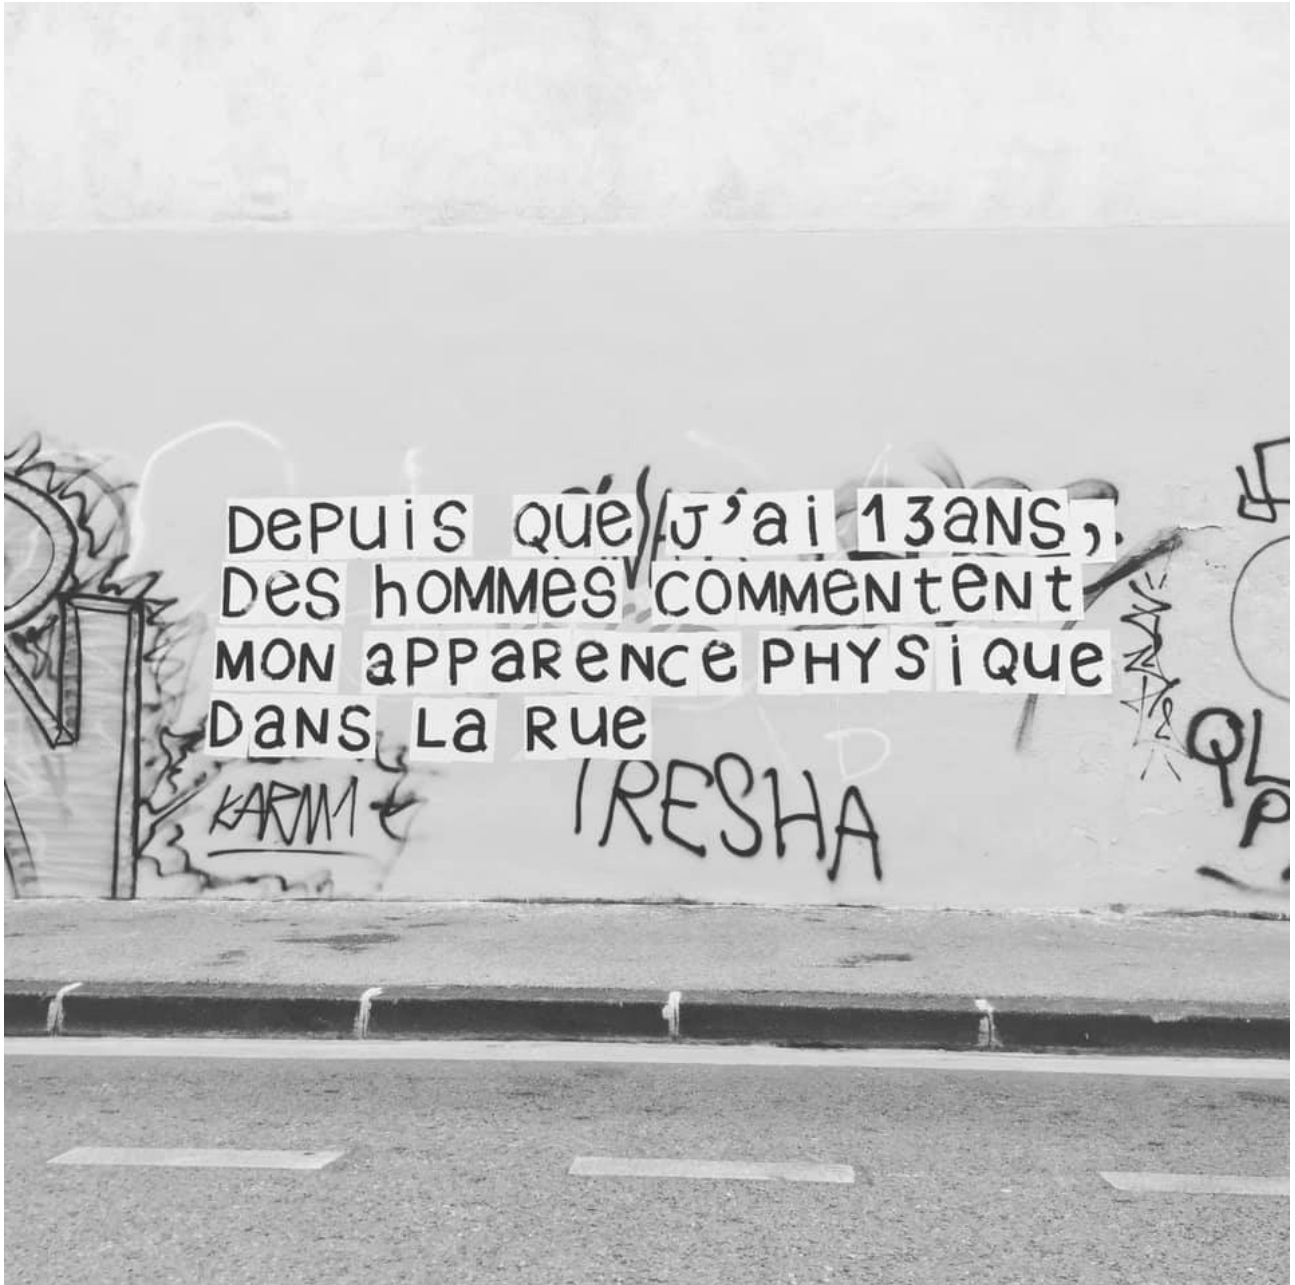 DePUiS QUE J'ai 13aNS,
DeS hOMMeS COMMeNteNt
MON aPPaReNCe PHYSiQUe
DaNS La RUe
KARM1
TRESHA
QL
P